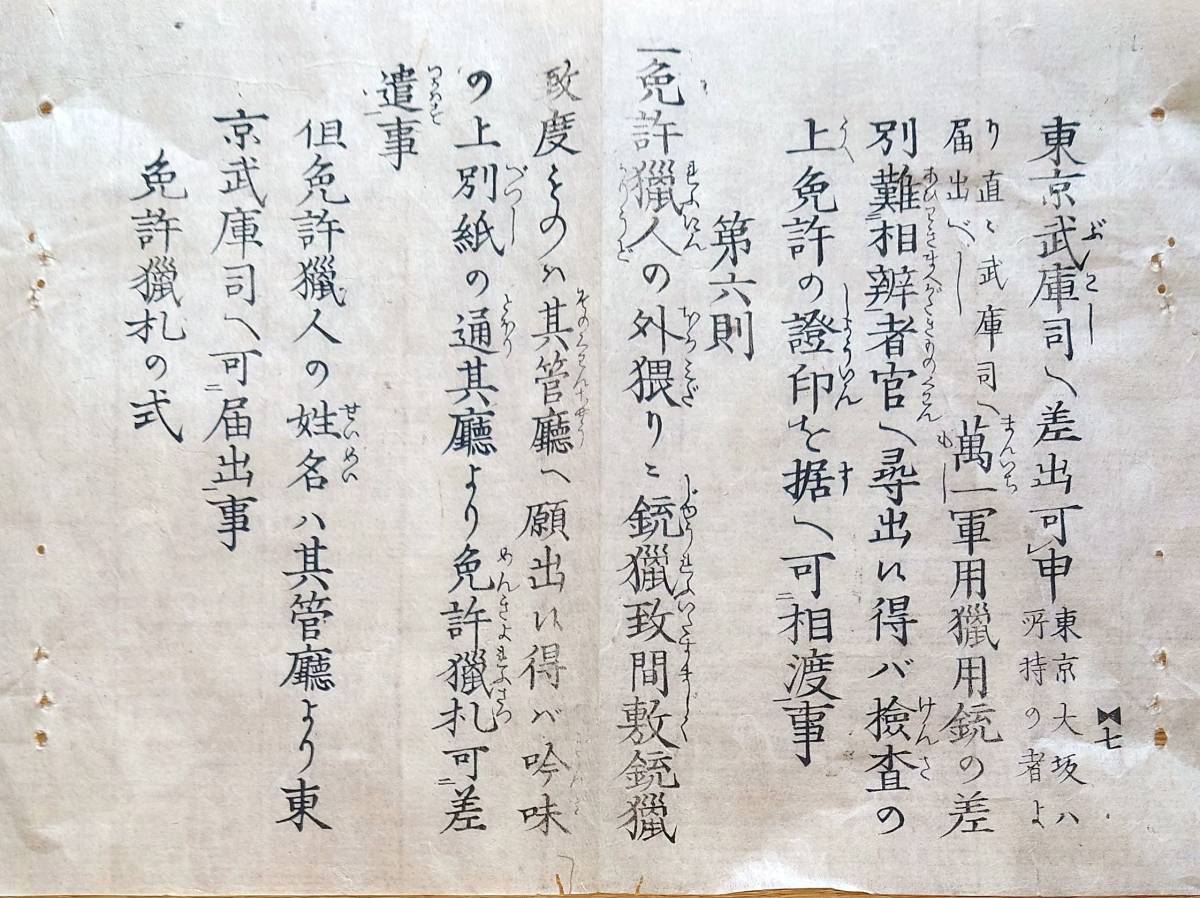 七
東京武庫司へ差出可申東京大坂ハ所持の者よ
り直ニ武庫司へ届出べし萬一軍用獵用銃の差
別難二相辨一者官へ尋出候得バ檢査の
上免許の證印を据へ可二相渡一事
第六則
一免許獵人の外猥りニ銃獵致間敷銃獵
致度ものハ其管廳へ願出候得バ吟味
の上別紙の通其廳より免許獵札可二差
遣一事
但免許獵人の姓名ハ其管廳より東
京武庫司へ可二届出一事
免許獵札の式